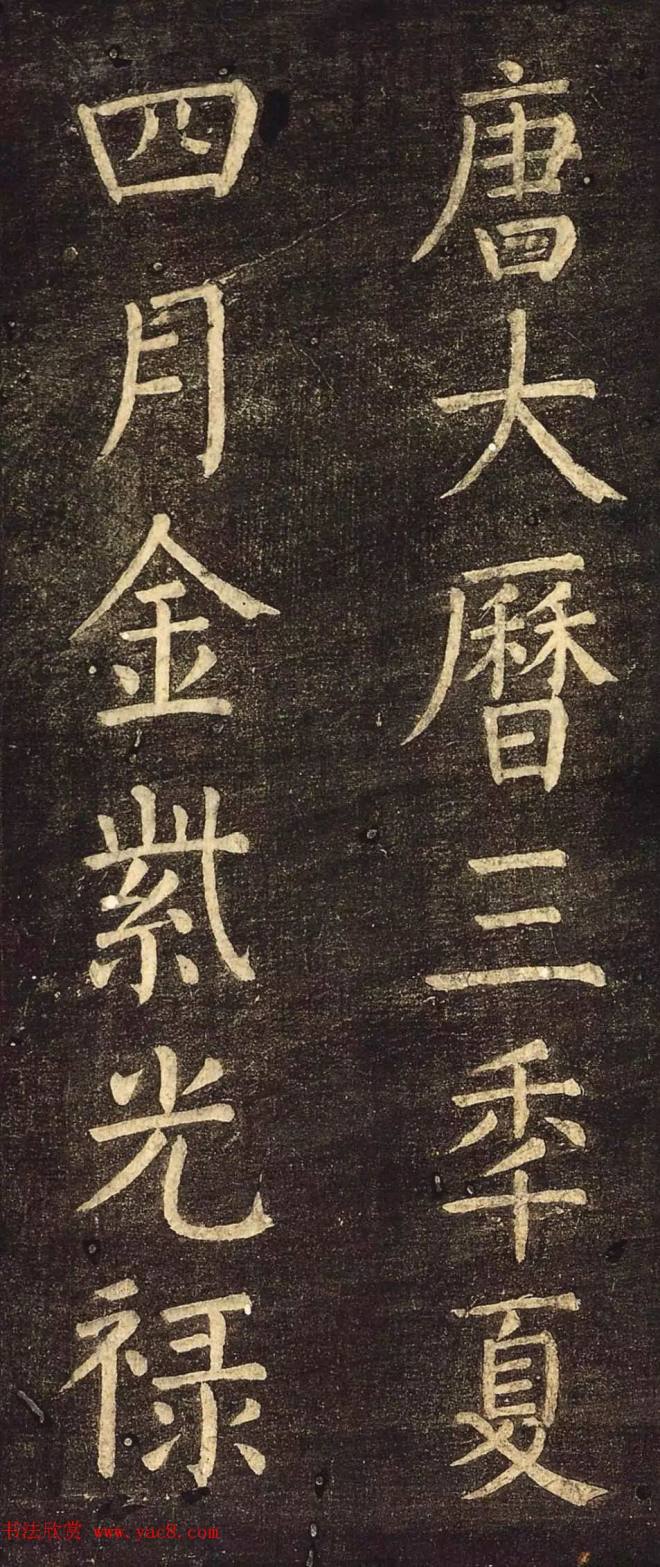 唐大曆三秊夏
四月金紫光禄
书法欣赏 www.yac8.com